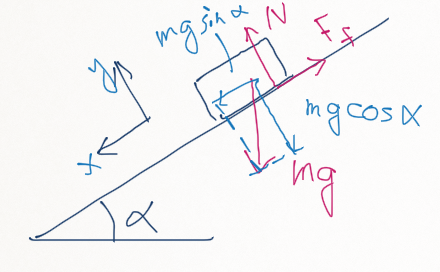 mg sin α
N
F f
y
mg cos α
x
mg
α